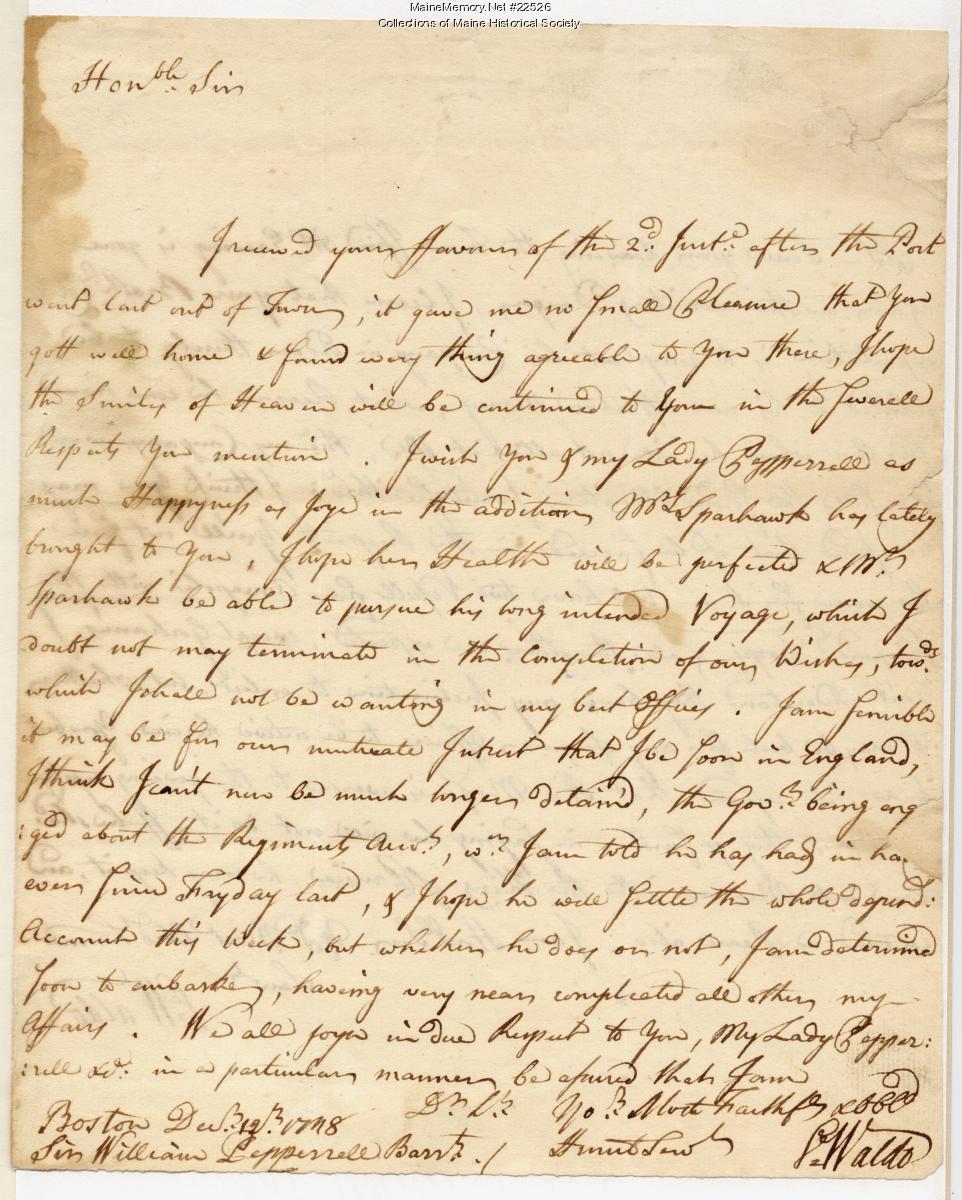 MaineMemory.Net #22526
Collections of Maine Historical Society
Honble. Sir
I receiv'd your ffavour of the 2d. Inst. after the Post
went last out of Town, it gave me no small Pleasure that you
gott well home & found every thing agreeable to you there, I hope
the Smiles of Heaven will be continued to You in the severall
Respects You mention. I wish You & my Lady Pepperrell as
much Happyness as Joye in the addition Mrs. Sparhawk has lately
brought to You, I hope her Health will be perfected & Mr.
Sparhawk be able to pursue his long intended Voyage, which I
doubt not may terminate in the Completion of our Wishes, towds.
which I shall not be wanting in my best Offices. I am sensible
it may be for our mutuale Intrest that I be soon in England,
I think I can't now be much longer detain'd, the Govr. being eng
:ged about the Regiments Accots., wch. I am told he has had in ha
ever since Fryday last, & I hope he will settle the whole depend:
Account this Week, but whether he does or not, I am determined
soon to embarke, having very near compleated all other my
Affairs. We all joyn in due Respect to You, My Lady Pepper:
:rell &c. in a particular manner, be assured that I am
Dr. Sr. Yor. Most Faithfl. & obbd
Boston Decr. 12th. 1748
Humb Servt
Sir William Pepperrell Barrt. /
S Waldo